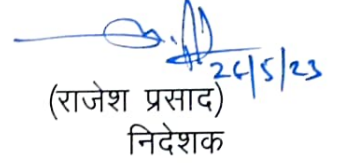 26/5/23
(राजेश प्रसाद)
निदेशक